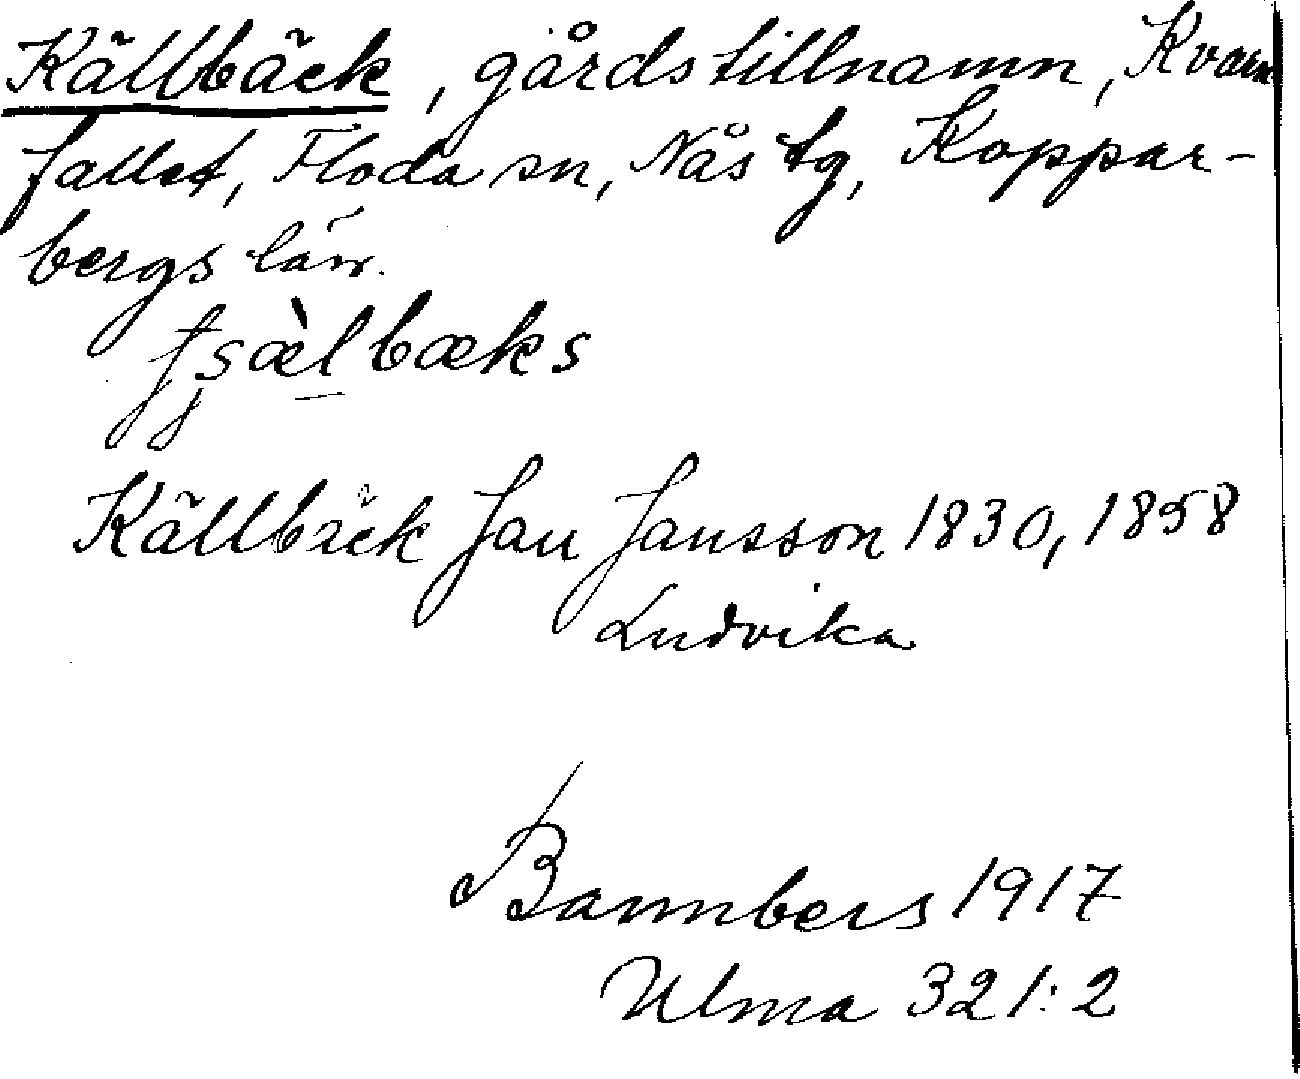 Källbäck, gårdstillnamn, Kvarn
fallet, Floda sn, Nås tg, Koppar-
bergs län.
Källbäck Jan Jansson 1830, 1858
Ludvika
Bannbers 1917
Ulma 321:2